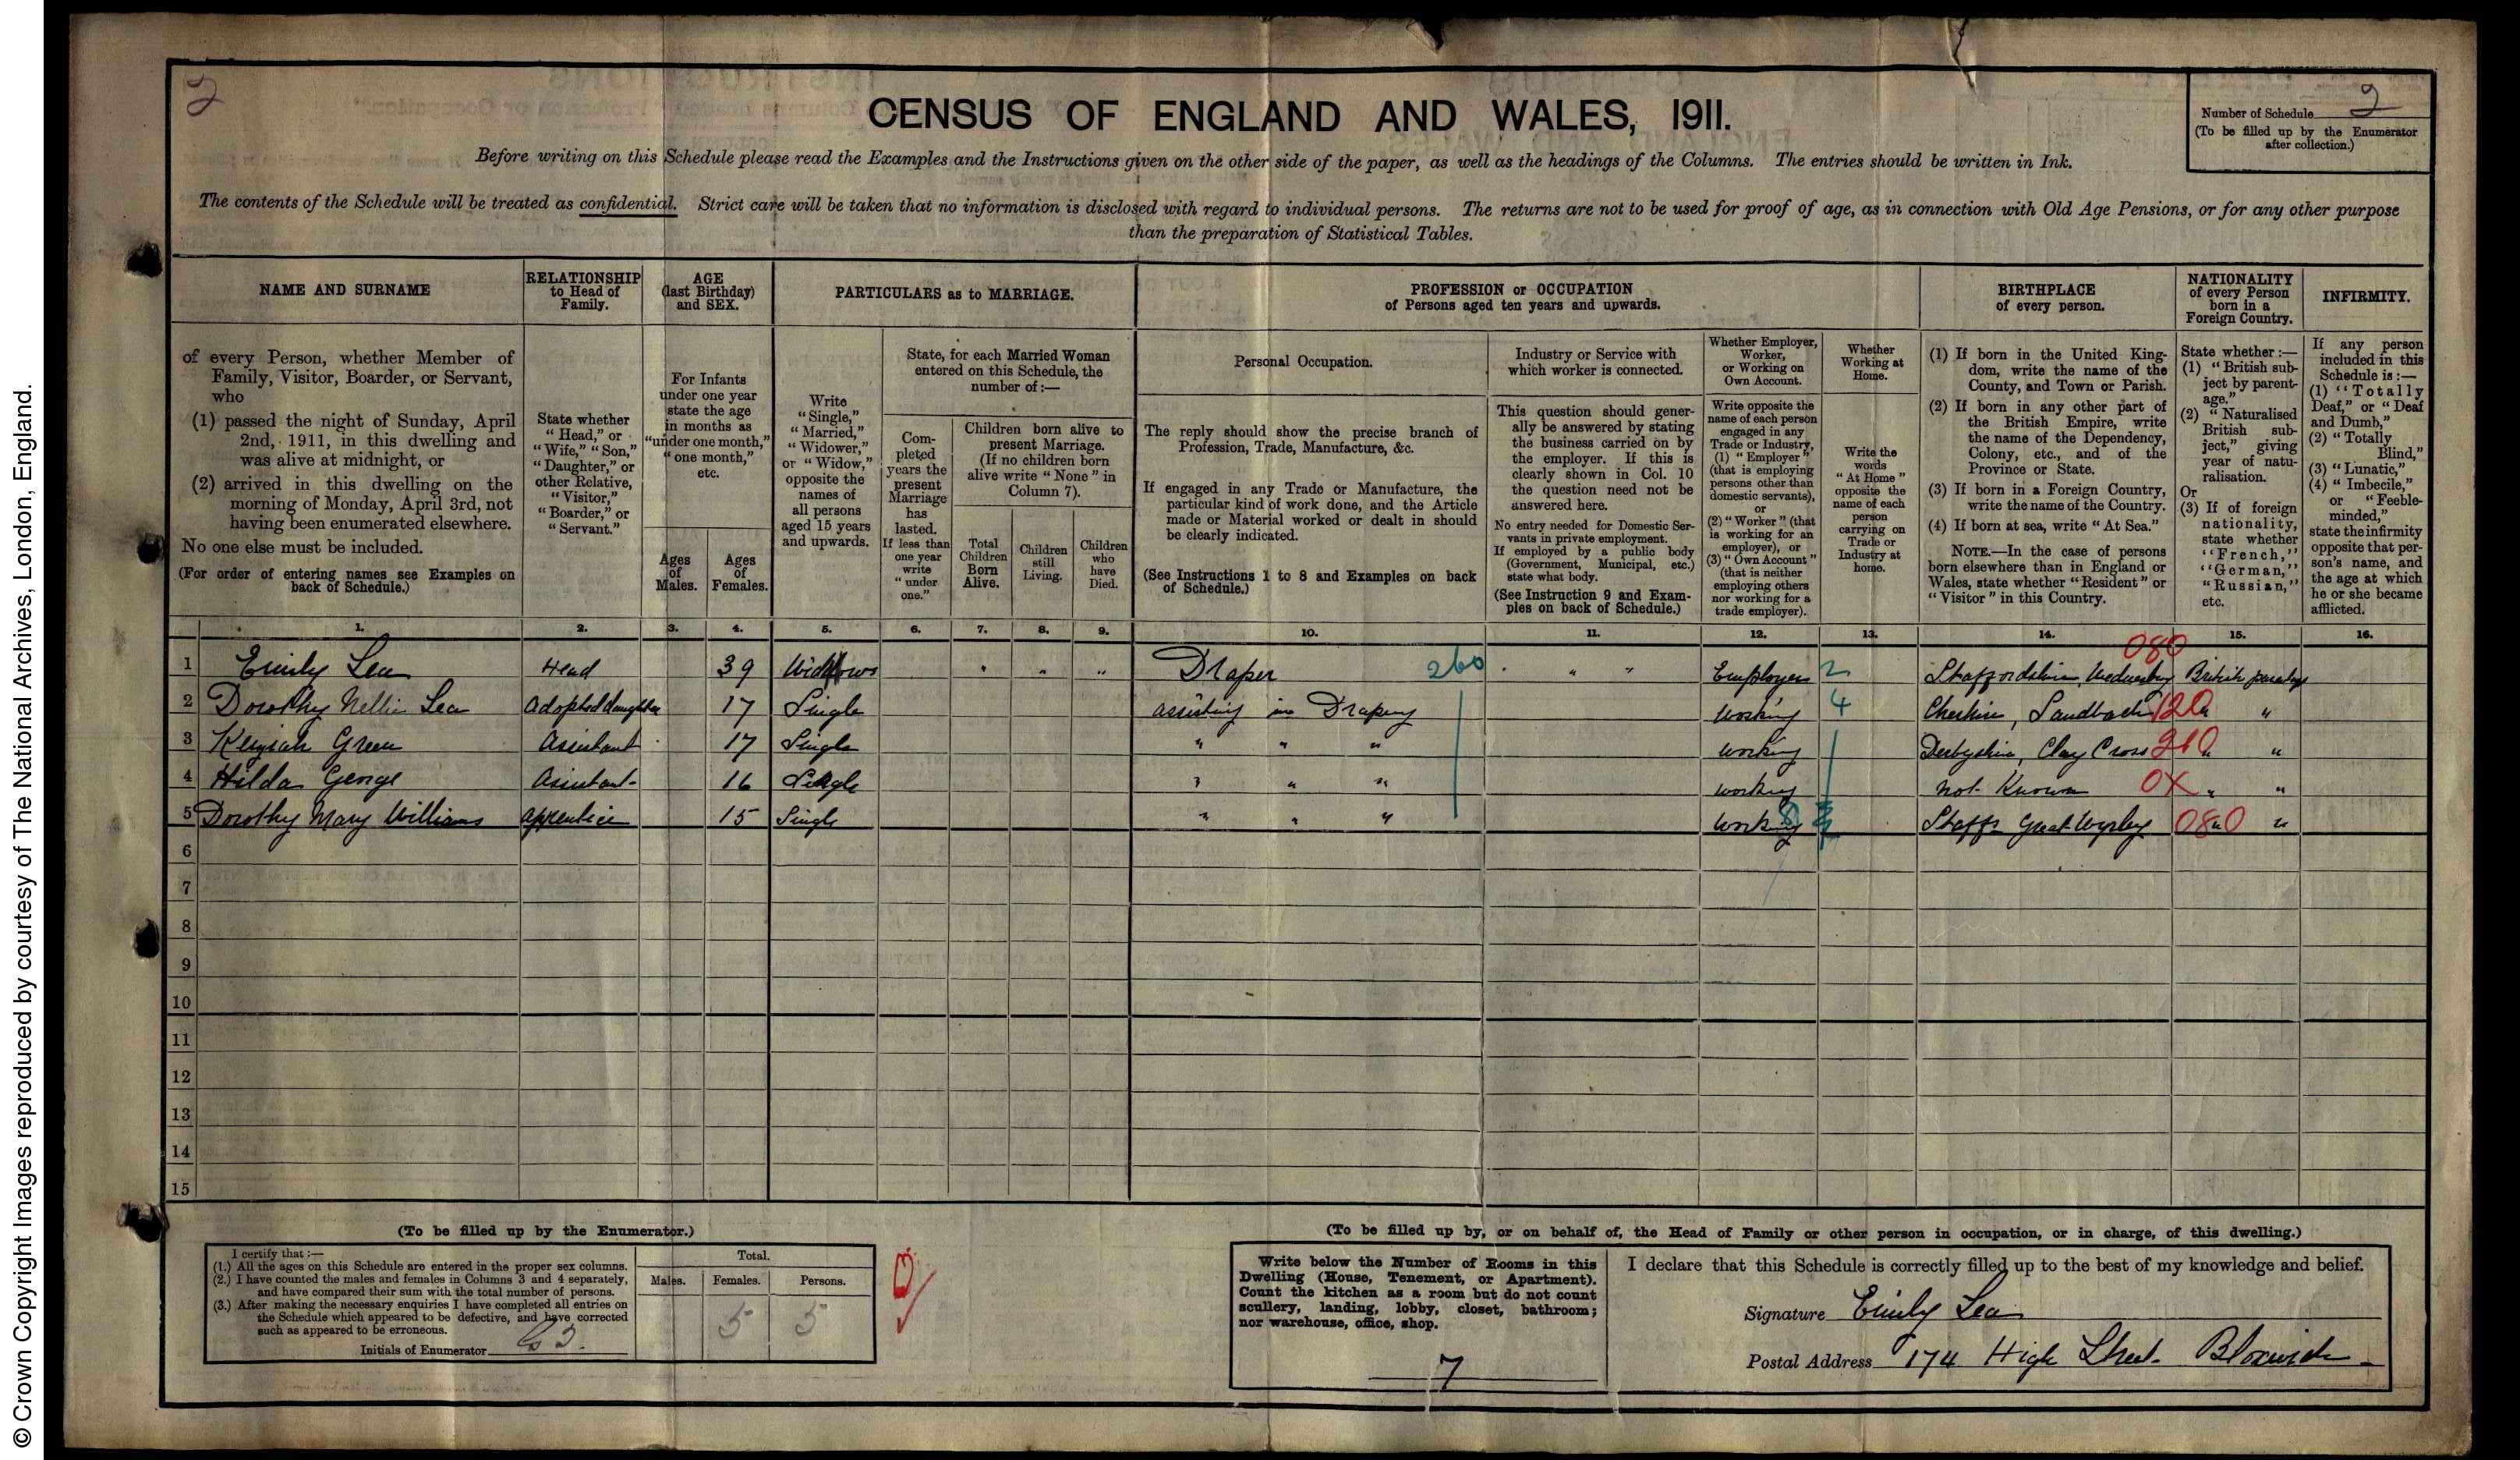 © Crown Copyright Images reproduced by courtesy of The National Archives, London, England.
2
CENSUS OF ENGLAND AND WALES, 1911.
Number of Schedule 2
(To be filled up by the Enumerator
after collection.)
Before writing on this Schedule please read the Examples and the Instructions given on the other side of the paper, as well as the headings of the Columns. The entries should be written in Ink.
The contents of the Schedule will be treated as confidential. Strict care will be taken that no information is disclosed with regard to individual persons. The returns are not to be used for proof of age, as in connection with Old Age Pensions, or for any other purpose
than the preparation of Statistical Tables.
NAME AND SURNAME
of every Person, whether Member of
Family, Visitor, Boarder, or Servant,
who
(1) passed the night of Sunday, April
2nd, 1911, in this dwelling and
was alive at midnight, or
(2) arrived in this dwelling on the
morning of Monday, April 3rd, not
having been enumerated elsewhere.
No one else must be included.
(For order of entering names see Examples on
back of Schedule.)
RELATIONSHIP
to Head of
Family.
State whether
"Head," or
"Wife," "Son,"
"Daughter," or
other Relative,
"Visitor,"
"Boarder," or
"Servant."
AGE
(last Birthday)
and SEX.
For Infants
under one year
state the age
in months as
"under one month,"
"one month,"
etc.
Ages
of
Males.
Ages
of
Females.
PARTICULARS as to MARRIAGE.
Write
"Single,"
"Married,"
"Widower,"
or "Widow,"
opposite the
names of
all persons
aged 15 years
and upwards.
State, for each Married Woman
entered on this Schedule, the
number of:—
Com-
pleted
years the
present
Marriage
has
lasted.
If less than
one year
write
"under
one."
Children born alive to
present Marriage.
(If no children born
alive write "None" in
Column 7).
Total
Children
Born
Alive.
Children
still
Living.
Children
who
have
Died.
PROFESSION or OCCUPATION
of Persons aged ten years and upwards.
Personal Occupation.
The reply should show the precise branch of
Profession, Trade, Manufacture, &c.
If engaged in any Trade or Manufacture, the
particular kind of work done, and the Article
made or Material worked or dealt in should
be clearly indicated.
(See Instructions 1 to 8 and Examples on back
of Schedule.)
Industry or Service with
which worker is connected.
This question should gener-
ally be answered by stating
the business carried on by
the employer. If this is
clearly shown in Col. 10
the question need not be
answered here.
No entry needed for Domestic Ser-
vants in private employment.
If employed by a public body
(Government, Municipal, etc.)
state what body.
(See Instruction 9 and Exam-
ples on back of Schedule.)
Whether Employer,
Worker,
or Working on
Own Account.
Write opposite the
name of each person
engaged in any
Trade or Industry,
(1) "Employer"
(that is employing
persons other than
domestic servants),
or
(2) "Worker" (that
is working for an
employer), or
(3) "Own Account"
(that is neither
employing others
nor working for a
trade employer).
Whether
Working at
Home.
Write the
words
"At Home"
opposite the
name of each
person
carrying on
Trade or
Industry at
home.
BIRTHPLACE
of every person.
(1) If born in the United King-
dom, write the name of the
County, and Town or Parish.
(2) If born in any other part of
the British Empire, write
the name of the Dependency,
Colony, etc., and of the
Province or State.
(3) If born in a Foreign Country,
write the name of the Country.
(4) If born at sea, write "At Sea."
NOTE.—In the case of persons
born elsewhere than in England or
Wales, state whether "Resident" or
"Visitor" in this Country.
NATIONALITY
of every Person
born in a
Foreign Country.
State whether:—
(1) "British sub-
ject by parent-
age."
(2) "Naturalised
British sub-
ject," giving
year of natu-
ralisation.
Or
(3) If of foreign
nationality,
state whether
"French,"
"German,"
"Russian,"
etc.
INFIRMITY.
If any person
included in this
Schedule is:—
(1) "Totally
Deaf," or "Deaf
and Dumb,"
(2) "Totally
Blind,"
(3) "Lunatic,"
(4) "Imbecile,"
or "Feeble-
minded,"
state the infirmity
opposite that per-
son's name, and
the age at which
he or she became
afflicted.
1. 2. 3. 4. 5. 6. 7. 8. 9. 10. 11. 12. 13. 14. 15. 16.
080
1 Emily Lea Head 39 Widdows " " Draper 260 " " Employer 2 Staffordshire, Wednesbury British parentage
2 Dorothy Nellie Lea Adopted daughter 17 Single assisting in Drapery Working 4 Cheshire, Sandbach 120 "
3 Keziah Green Assistant 17 Single " " " Working Derbyshire, Clay Cross 210 "
4 Hilda George Assistant 16 Single " " " Working Not Known OX " "
5 Dorothy Mary Williams apprentice 15 Single " " " Working Staffs Great Wyrley 080 " "
6
7
8
9
10
11
12
13
14
15
(To be filled up by the Enumerator.)
I certify that:—
(1.) All the ages on this Schedule are entered in the proper sex columns.
(2.) I have counted the males and females in Columns 3 and 4 separately,
and have compared their sum with the total number of persons.
(3.) After making the necessary enquiries I have completed all entries on
the Schedule which appeared to be defective, and have corrected
such as appeared to be erroneous.
Initials of Enumerator
Total.
Males. Females. Persons.
5 5
(To be filled up by, or on behalf of, the Head of Family or other person in occupation, or in charge, of this dwelling.)
Write below the Number of Rooms in this
Dwelling (House, Tenement, or Apartment).
Count the kitchen as a room but do not count
scullery, landing, lobby, closet, bathroom;
nor warehouse, office, shop.
7
I declare that this Schedule is correctly filled up to the best of my knowledge and belief.
Signature Emily Lea
Postal Address 174 High Street. Bloxwich